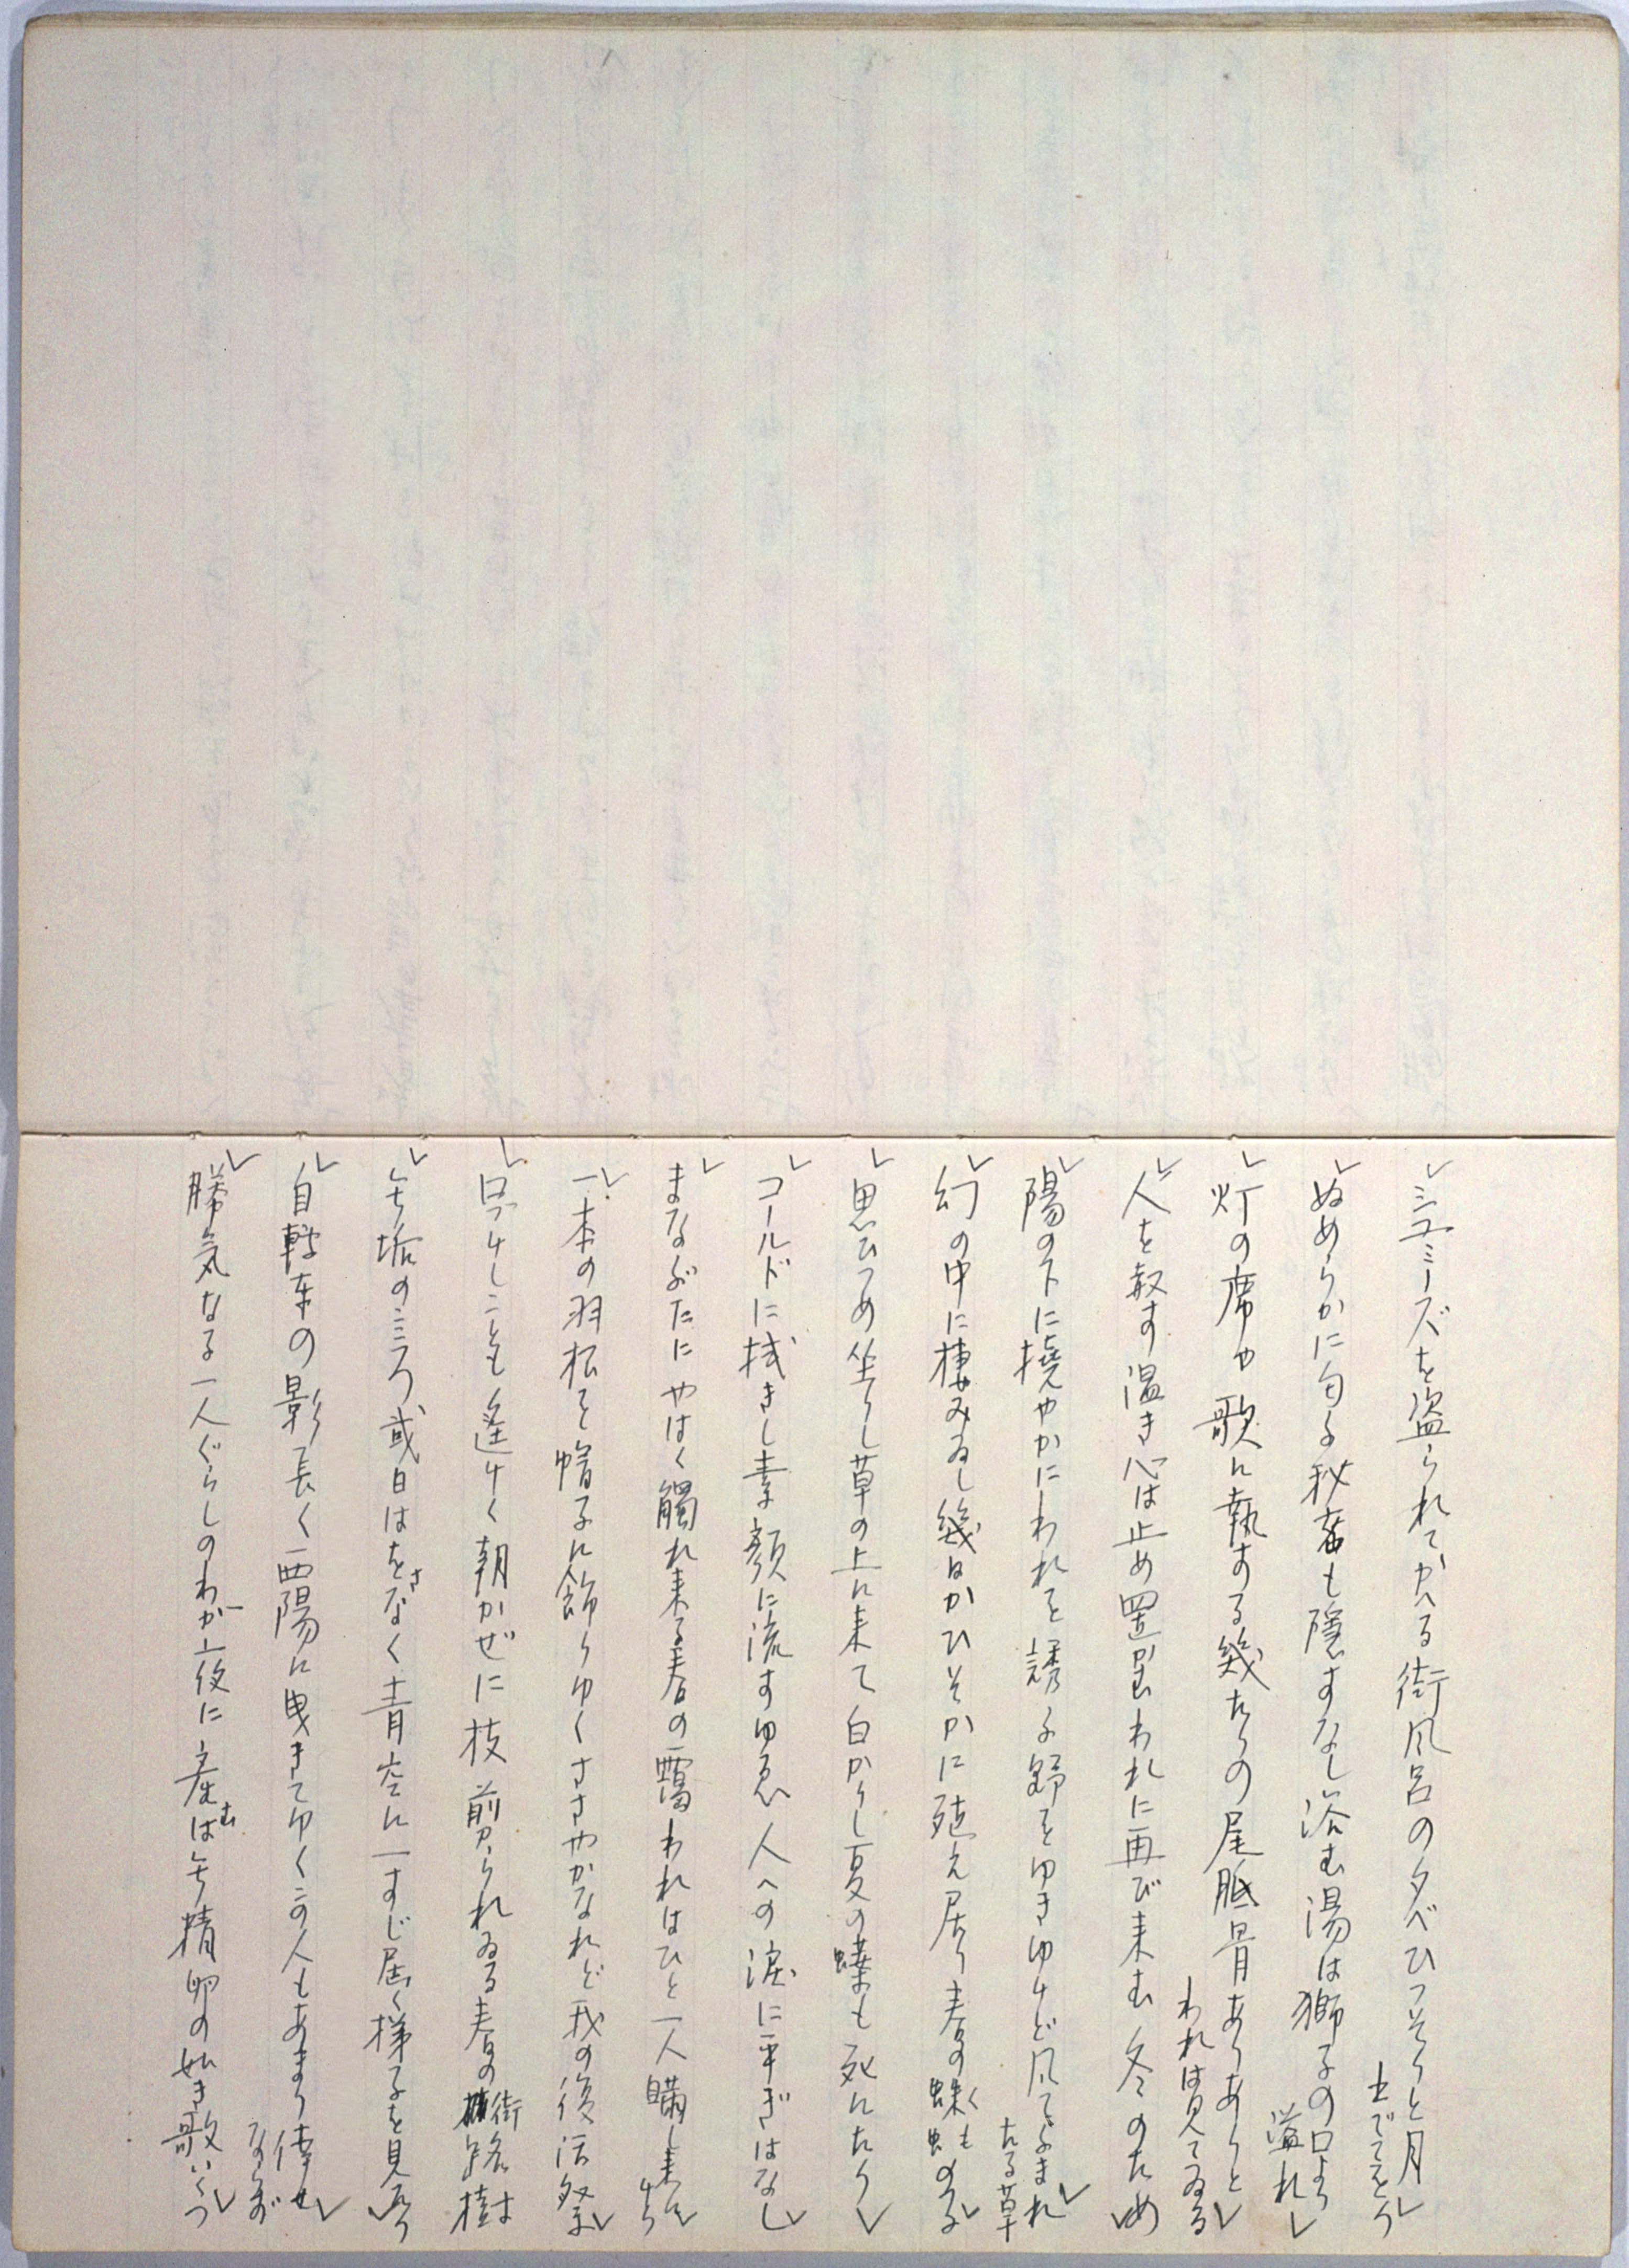 シュミーズを盗られてかへる街風呂の夕べひつそりと月
出でてをり
ぬめらかに匂ふ秘密も隠すなし浴む湯は獅子の口より
溢れ
灯の席や歌に執する幾たりの尾骶骨ありありと
われは見てゐる
人を殺す温き心は止め置かむわれに再び来む冬のため
陽の下に撓やかにわれを誘ふ野をゆきゆけど風によまれ
たる草
幻の中に棲みゐし幾日かひそかに殖え居り春の蜘蛛のる
思ひつめ坐りし草の上に来て白かりし夏の蝶も死にたり
コールドに拭きし素顔に流すゆゑ人への涙に平ぎはなし
まなぶたにやはく觸れ来る春の靄われはひと一人瞞し来
一本の羽根を帽子に飾りゆくささやかなれど我の復活祭
口づけしことも遙けく朝かぜに枝剪られゐる春の街路樹は
無垢のこころ或日はをさなく青空に一すじ届く梯子を見たり
自轉車の影長く西陽に曳きてゆくこの人もあまり倖せ
ならず
勝気なる一人ぐらしのわが夜に産むは無精卵の如き歌いくつ